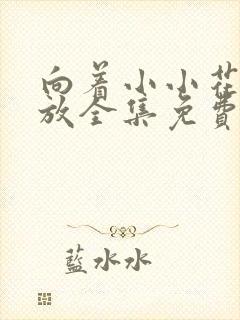 向着小小花
放全集免费
藍水水